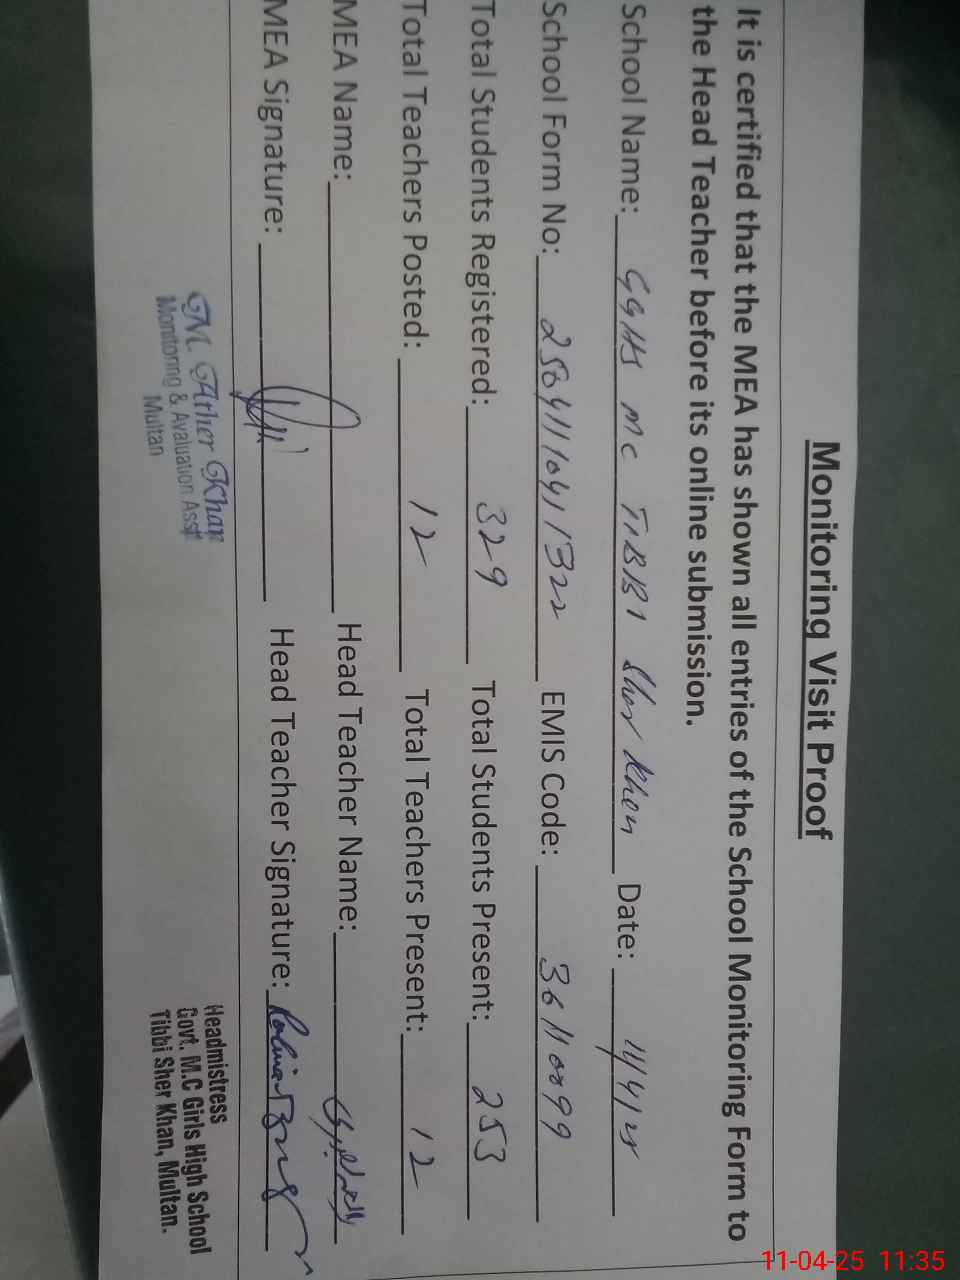 Monitoring Visit Proof
It is certified that the MEA has shown all entries of the School Monitoring Form to
the Head Teacher before its online submission.
School Name: GGHS MC TIBBI Sher Khan Date: 11/4/25
School Form No: EMIS Code:
Total Students Registered: 329 Total Students Present: 253
Total Teachers Posted: 12 Total Teachers Present: 12
MEA Name: Head Teacher Name:
MEA Signature: Head Teacher Signature:
M. Ather Khan
Monitoring & Avaluation Asst
Multan
Headmistress
Govt. M.C Girls High School
Tibbi Sher Khan, Multan.
11-04-25 11:35